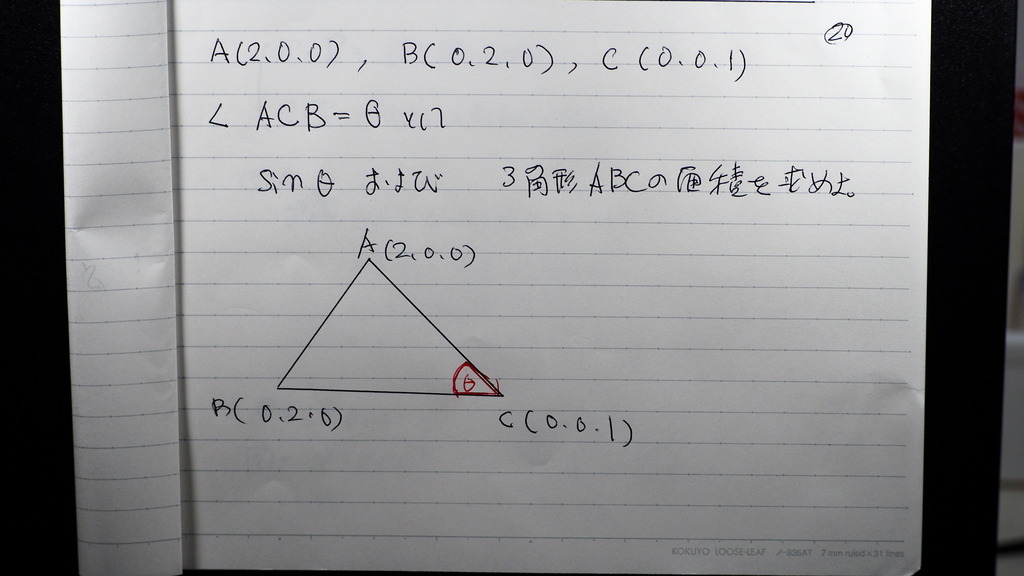 ⑳
A(2.0.0), B(0.2.0), C(0.0.1)
∠ACB=θ として
sinθ および 3角形ABCの面積を求めよ。
A(2.0.0)
θ
B(0.2.0)
C(0.0.1)
KOKUYO LOOSE-LEAF ノ-836AT 7 mm ruled×31 lines